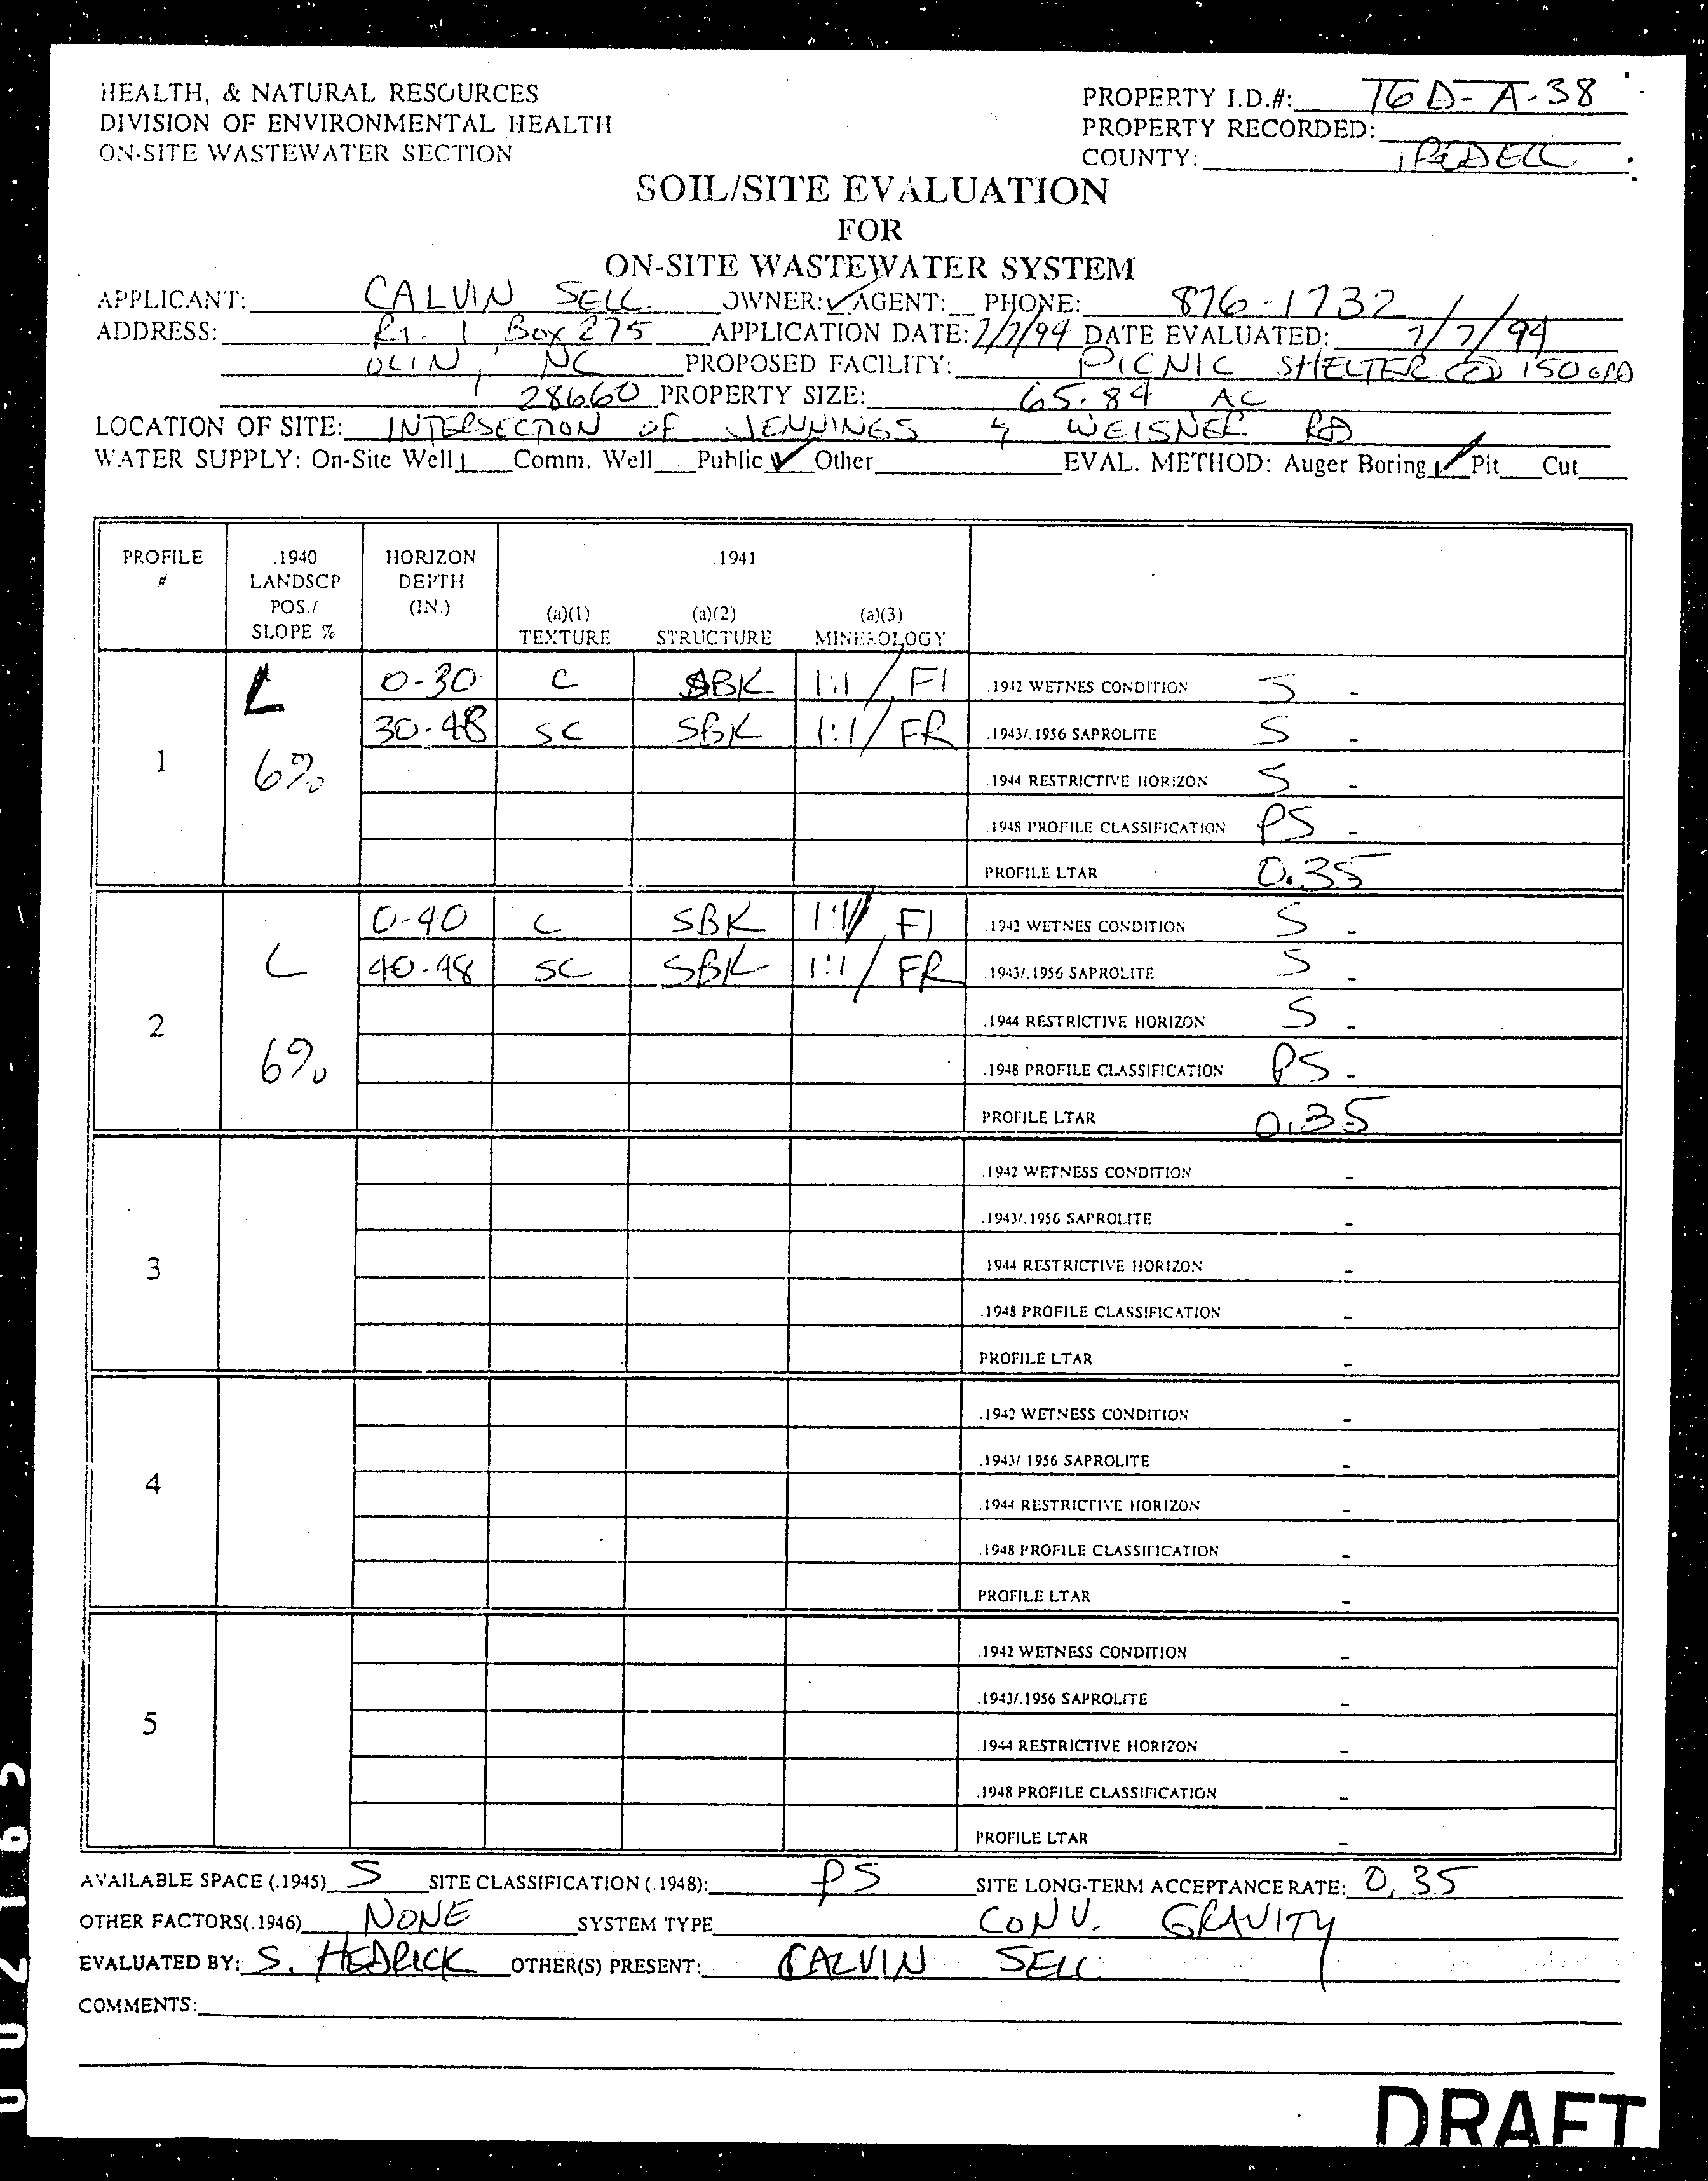 HEALTH, & NATURAL RESOURCES
DIVISION OF ENVIRONMENTAL HEALTH
ON-SITE WASTEWATER SECTION
PROPERTY I.D.#: T6D-A-38
PROPERTY RECORDED:
COUNTY: IREDELL
SOIL/SITE EVALUATION
FOR
ON-SITE WASTEWATER SYSTEM
APPLICANT: CALVIN SELL OWNER: ✓ AGENT: __ PHONE: 876-1732
ADDRESS: RT. 1 Box 275 APPLICATION DATE: 7/7/94 DATE EVALUATED: 7/7/94
OLIN, NC PROPOSED FACILITY: PICNIC SHELTER @ 150 GPD
28660 PROPERTY SIZE: 65.84 AC
LOCATION OF SITE: INTERSECTION OF JENNINGS & WEISNER RD
WATER SUPPLY: On-Site Well Comm. Well Public ✓ Other EVAL. METHOD: Auger Boring ✓ Pit Cut
PROFILE # .1940 LANDSCP POS./ SLOPE % HORIZON DEPTH (IN.) .1941 (a)(1) TEXTURE (a)(2) STRUCTURE (a)(3) MINEROLOGY
1 L 6%
0-30 C SBK 1:1 / FI .1942 WETNES CONDITION S -
30-48 SC SBK 1:1 / FR .1943/.1956 SAPROLITE S -
.1944 RESTRICTIVE HORIZON S -
.1948 PROFILE CLASSIFICATION PS -
PROFILE LTAR 0.35
2 L 6%
0-40 C SBK 1:1 / FI .1942 WETNES CONDITION S -
40-48 SC SBK 1:1 / FR .1943/.1956 SAPROLITE S -
.1944 RESTRICTIVE HORIZON S -
.1948 PROFILE CLASSIFICATION PS -
PROFILE LTAR 0.35
3
.1942 WETNESS CONDITION -
.1943/.1956 SAPROLITE -
.1944 RESTRICTIVE HORIZON -
.1948 PROFILE CLASSIFICATION -
PROFILE LTAR -
4
.1942 WETNESS CONDITION -
.1943/.1956 SAPROLITE -
.1944 RESTRICTIVE HORIZON -
.1948 PROFILE CLASSIFICATION -
PROFILE LTAR -
5
.1942 WETNESS CONDITION -
.1943/.1956 SAPROLITE -
.1944 RESTRICTIVE HORIZON -
.1948 PROFILE CLASSIFICATION -
PROFILE LTAR -
AVAILABLE SPACE (.1945) S SITE CLASSIFICATION (.1948): PS SITE LONG-TERM ACCEPTANCE RATE: 0.35
OTHER FACTORS(.1946) NONE SYSTEM TYPE CONV. GRAVITY
EVALUATED BY: S. HEDRICK OTHER(S) PRESENT: CALVIN SELL
COMMENTS:
DRAFT